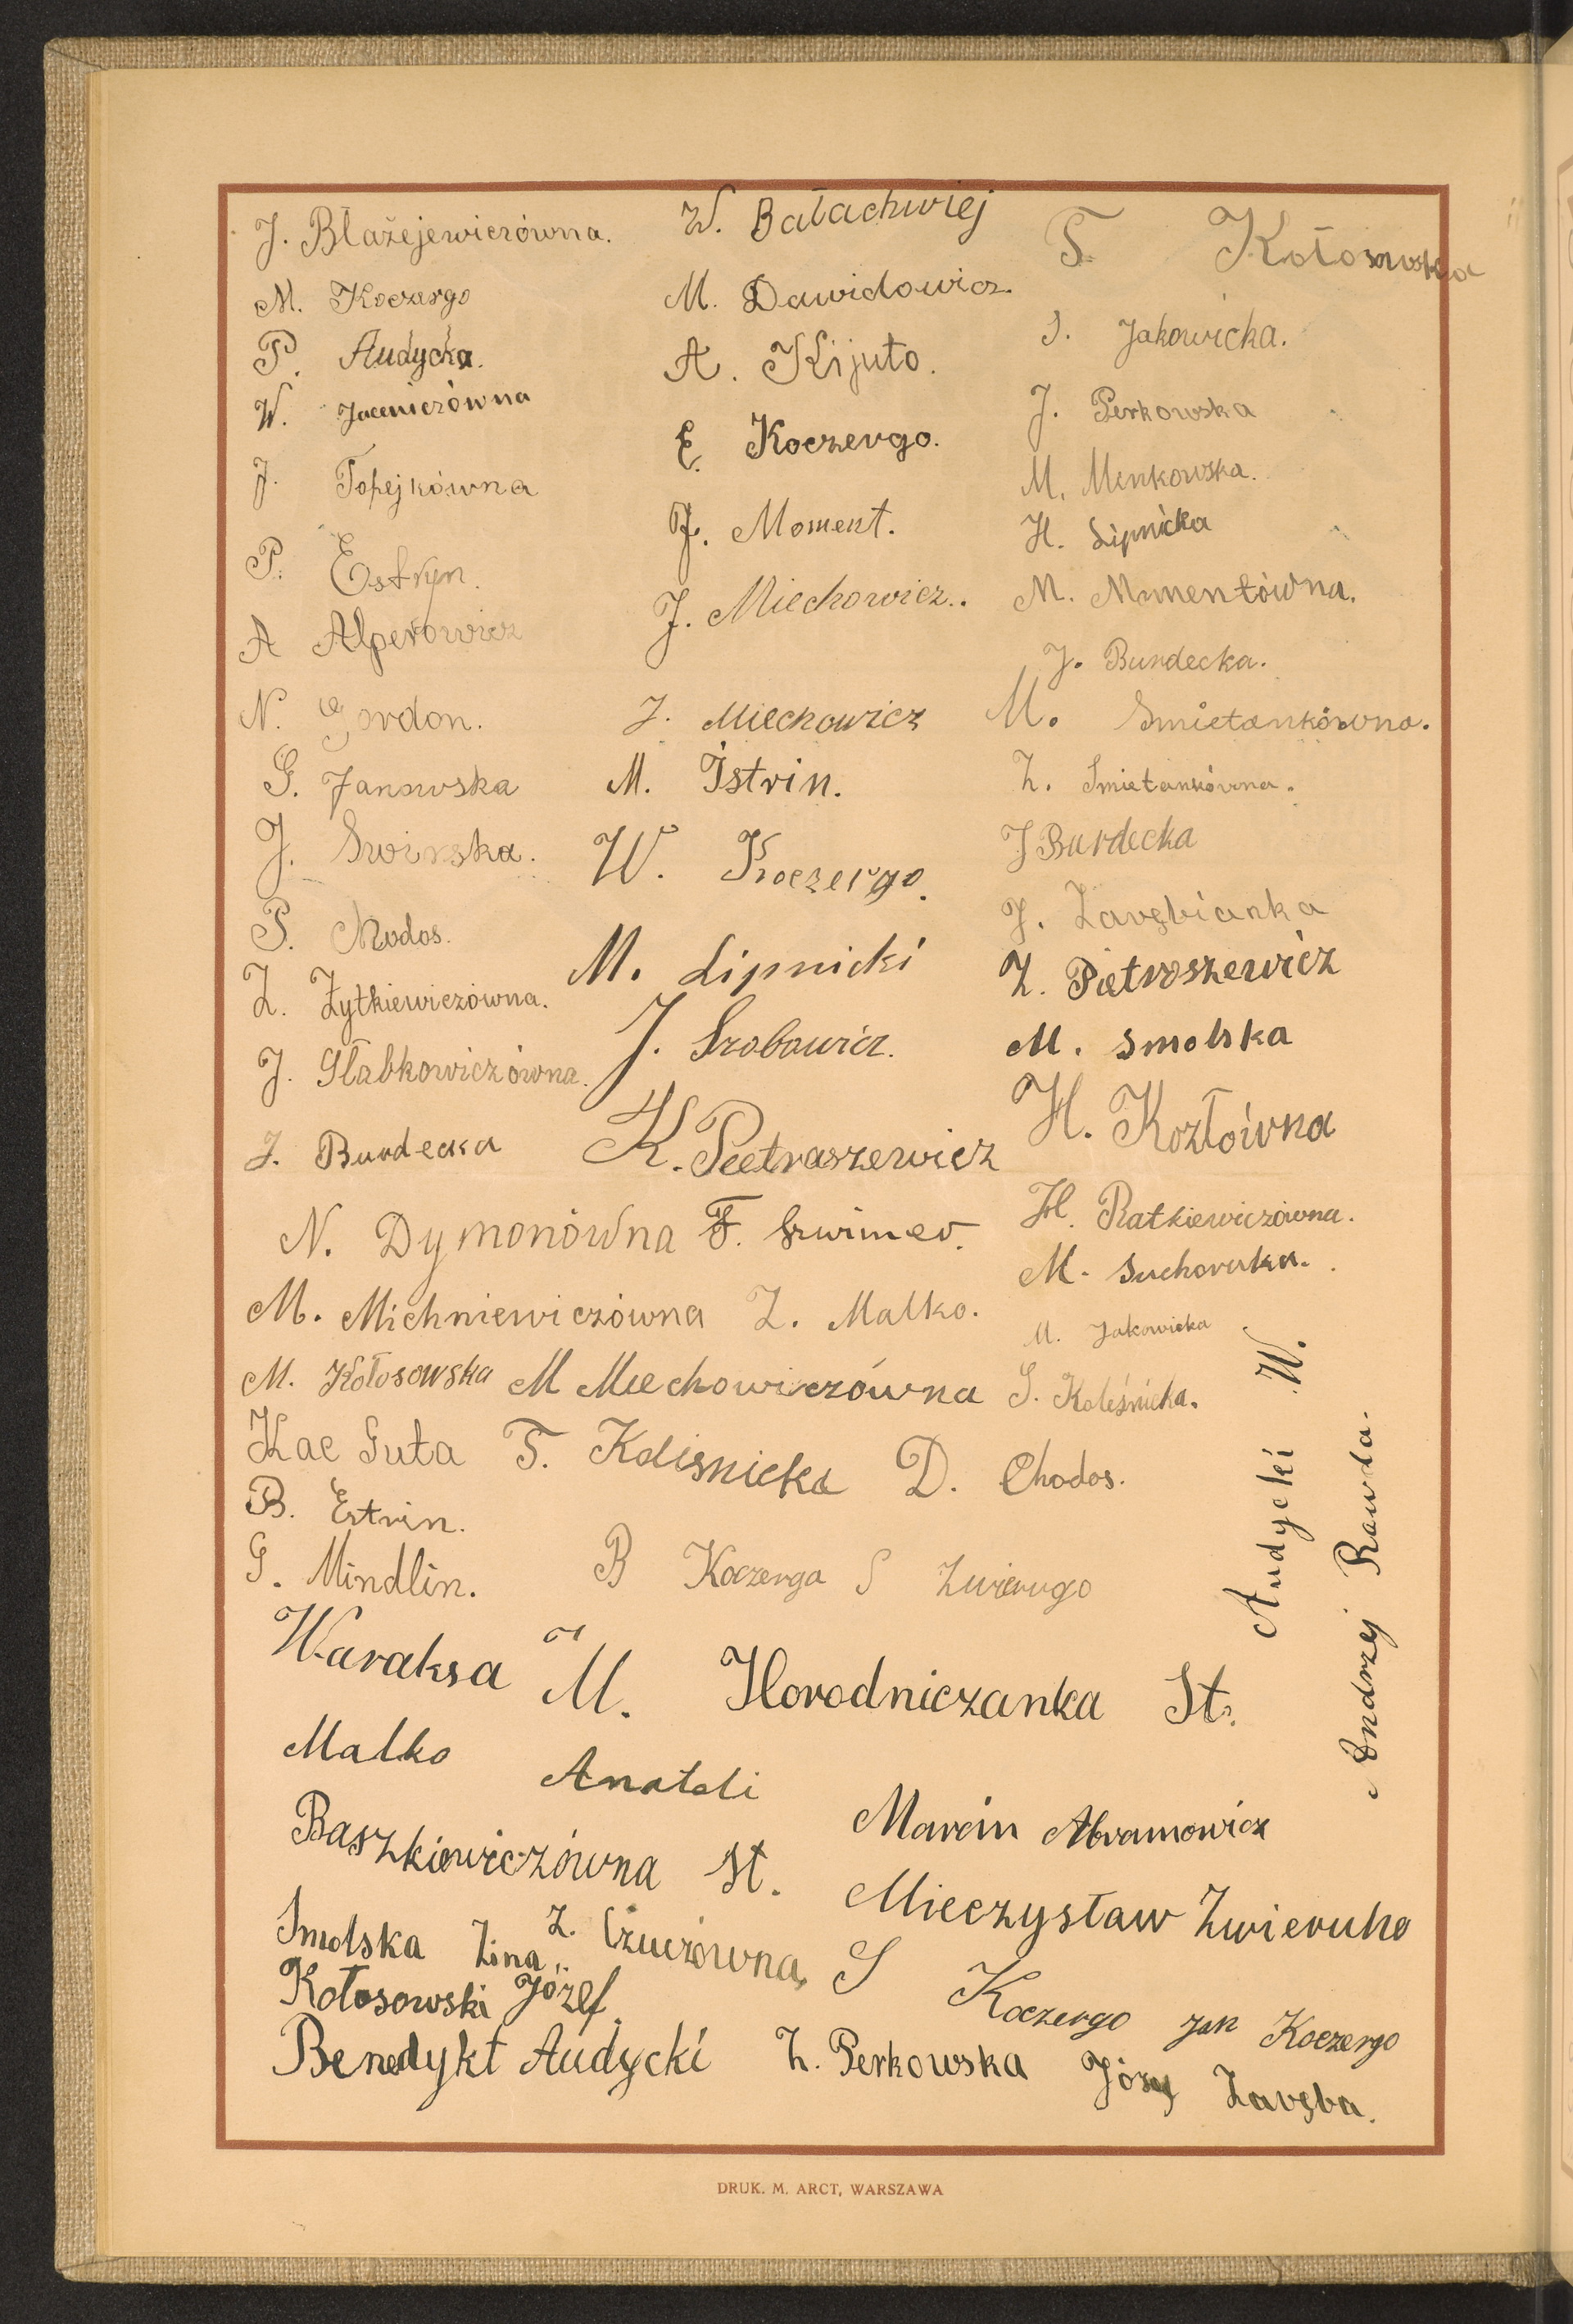 J. Błażejewiczówna.
M. Koczergo
P. Audycka.
W. Jacewiczówna
J. Topejkówna
P. Estryn.
A Alperowicz
N. Gordon.
G. Janowska
J. Swirska.
P. Chodos.
Z. Żytkiewiczówna.
J. Głabkowiczówna.
J. Burdecka
N. Dymonówna
M. Michniewiczówna
M. Kołosowska
Kac Guta
B. Estrin.
G. Mindlin.
W. Bałachwiej
M. Dawidowicz.
A. Kijuto.
E. Koczergo.
J. Moment.
J. Miechowicz.
J. Miechowicz
M. Istrin.
W. Koczergo.
M. Lipnicki
J. Szobowicz.
K. Pietraszewicz
F. Szwimer.
Z. Malko.
M Miechowiczówna
T. Kolisnicka
T. Kołosowska
J. Jakowicka.
J. Perkowska
M. Menkowska.
H. Lipnicka
M. Mumentówna.
J. Burdecka.
M. Smietankówna.
Z. Smietankówna.
J Burdecka
J. Zarębianka
Z. Pietroszewicz
M. Smolska
H. Kozłówna
H. Ratkiewiczówna.
M. Suchorska.
M. Jakowicka
S. Koleśnicka.
D. Chodos.
B Koczerga S Zwierugo
Waraksa M. Horodniczanka St.
Malko Anatoli
Marcin Abramowicz
Baszkiewiczówna St.
Mieczysław Zwieruho
Smolska Zina
Z. Czuczówna
S Koczergo Jan Koczergo
Kołosowski Józef.
Benedykt Audycki Z. Perkowska Józef Zaręba.
Audycki W.
Andrzej Rawda.
DRUK. M. ARCT, WARSZAWA